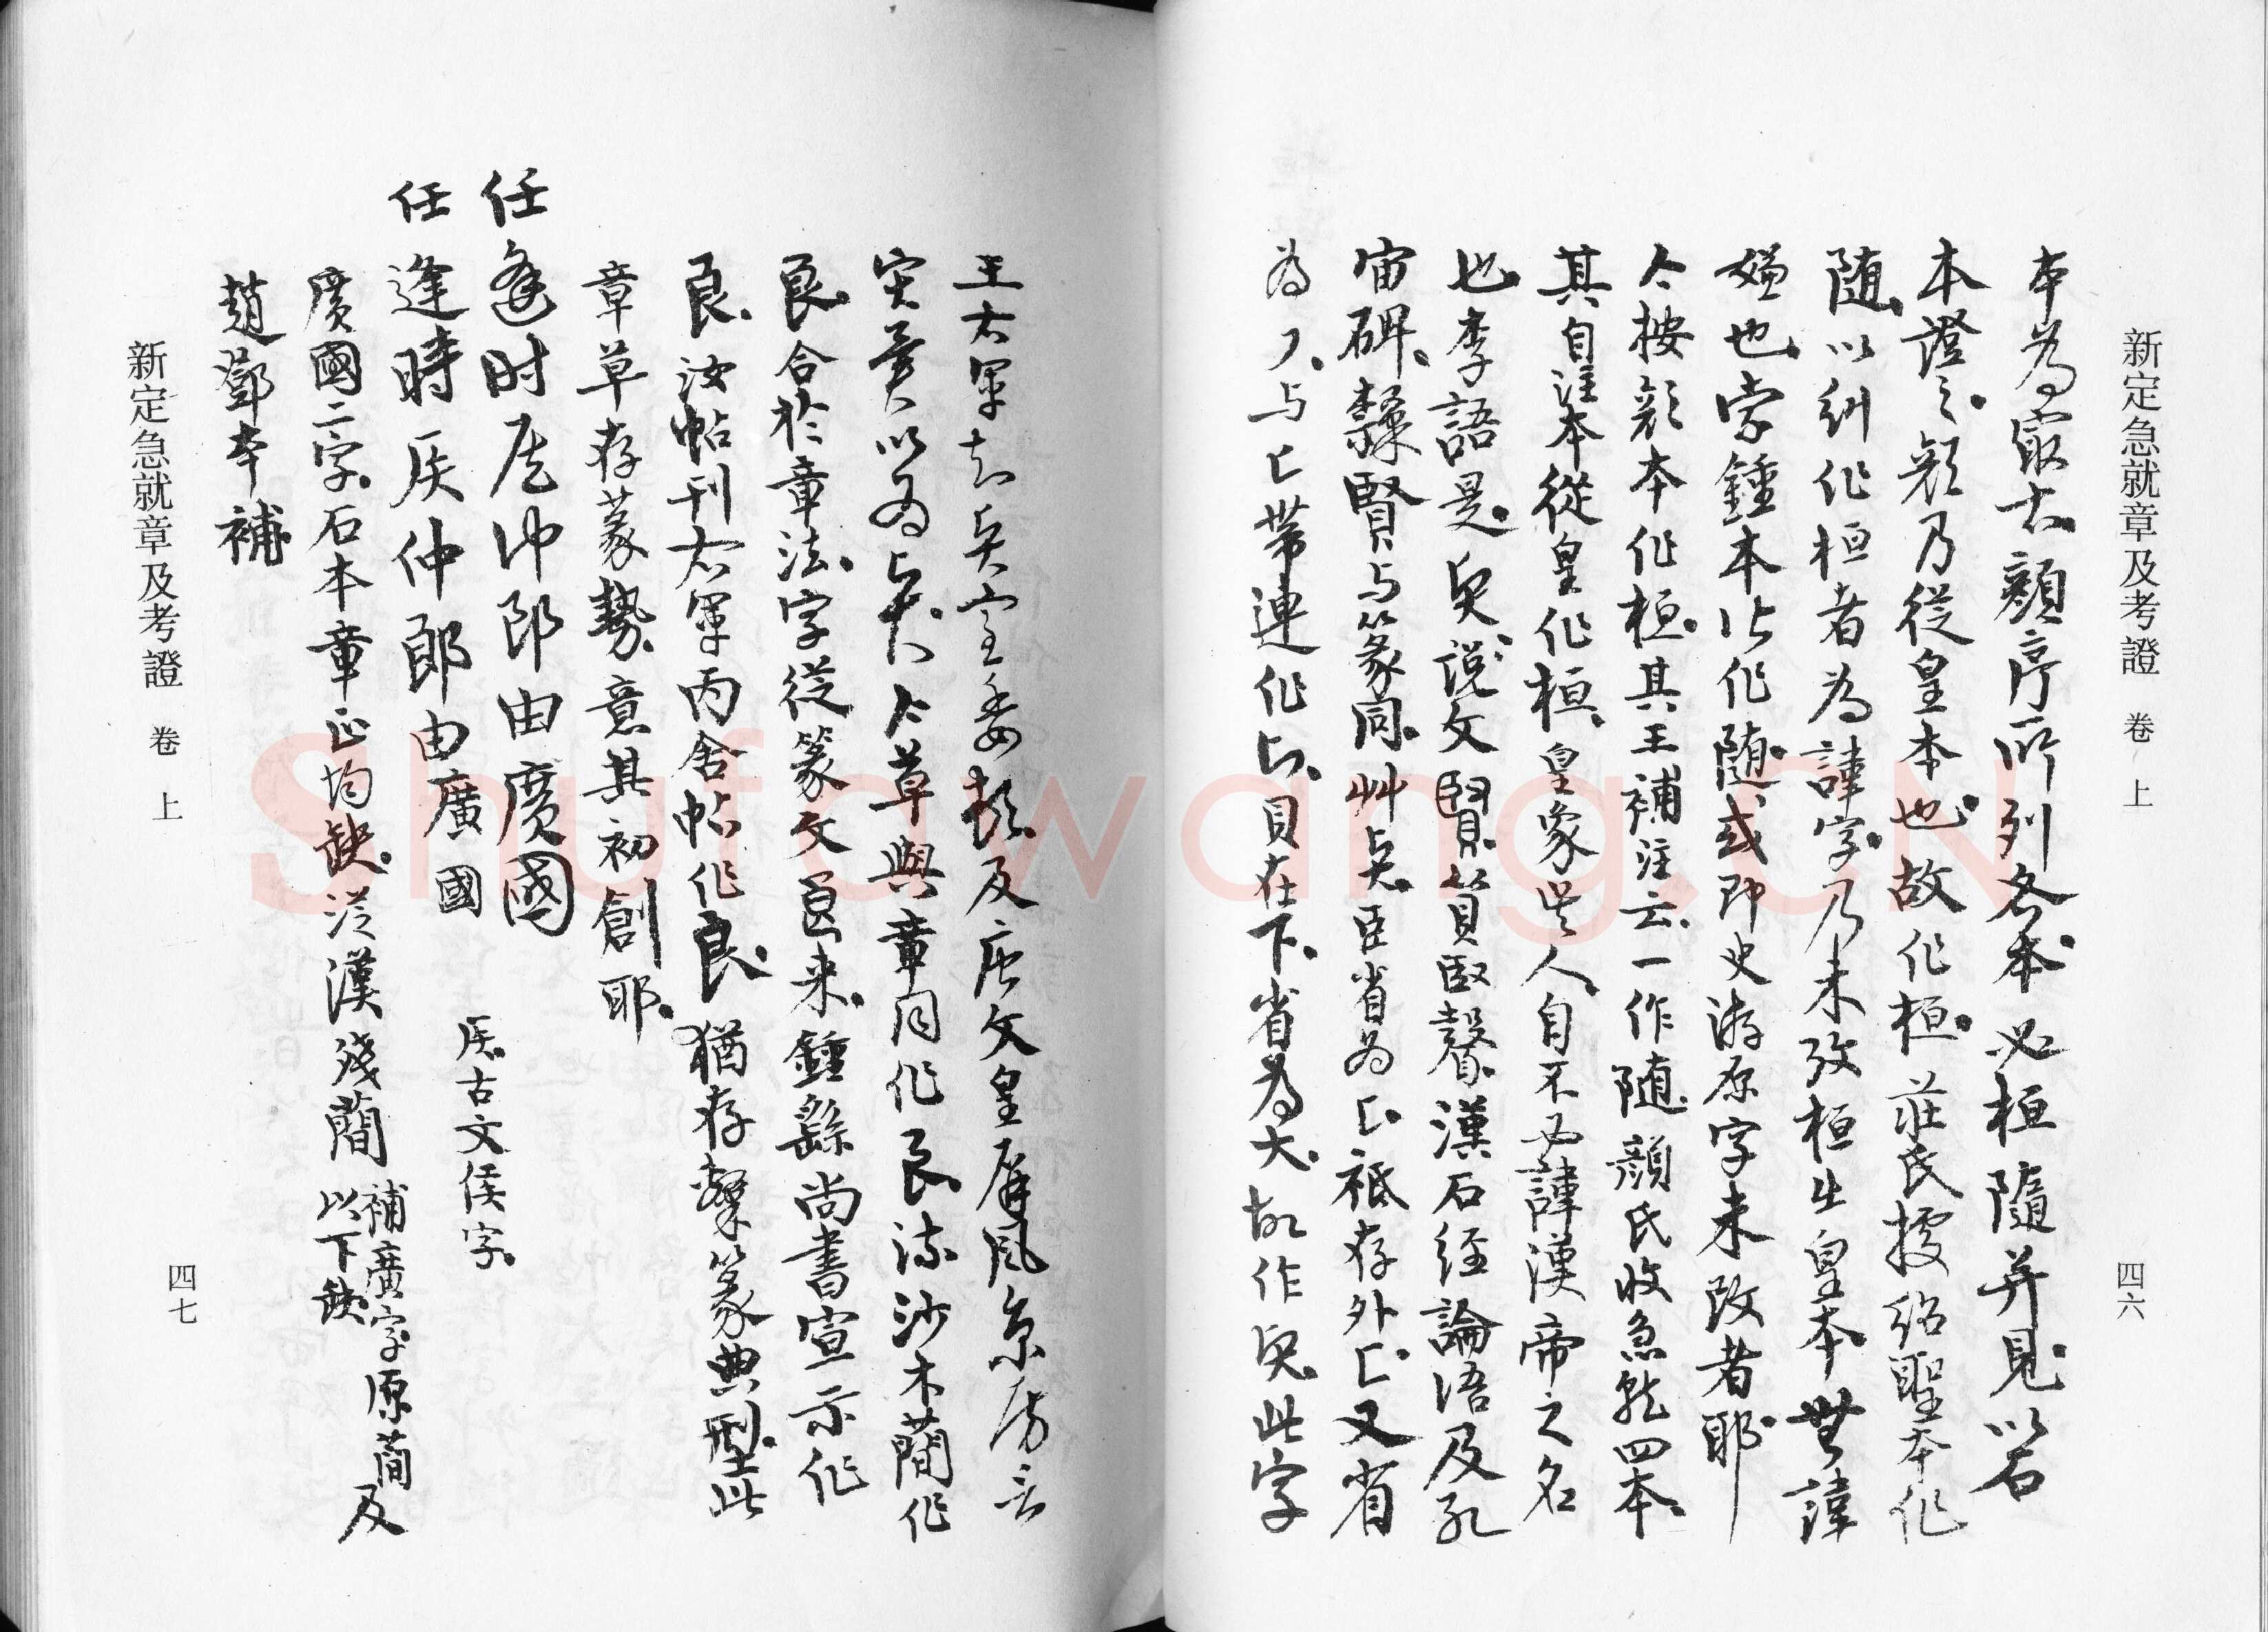 新定急就章及考證 卷上 四六
本為最古顏序所列各本必桓隨并見以石
本證之顏乃從皇本也故作桓莊氏據紹聖本作
隨以糾作桓者為諱字乃未攷桓出皇本無諱
嫌也索鍾本以作隨或即史游原字未改者耶
今按顏本作桓其王補注云一作隨顏氏收急就四本
其自注本從皇作桓皇象吳人自不必諱漢帝之名
也李語是 說文賢 漢石經論語及孔
宙碑 賢与篆同艸 臣省為 存外 又省
為 与 帶連作 貝在下省為大故作 此字
王右軍 及唐文皇屏風 云
以為 今草與章同作良流沙木簡作
良合於章法字從篆文 来鍾繇尚書宣示作
良汝帖刊右軍丙舍帖作良猶存 篆典型此
章草存篆勢意其初創耶
任逢时侯仲郎由廣國
任逢時侯仲郎由廣國 侯古文侯字
廣國二字石本章正均缺從漢殘簡補廣字原簡及以下缺
趙鄧本補
新定急就章及考證 卷上 四七
Shufawang.CN